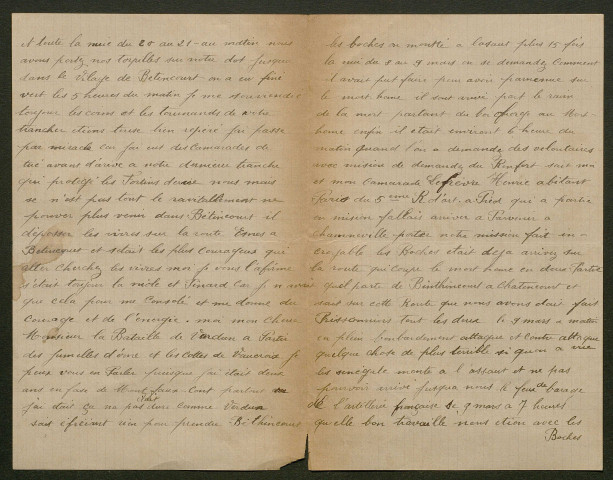 et toute la nuie du 20 au 21 au matin nous
avons portez nos torpilles sur notre dot jusque
dans le vilage de Bétincourt on a en finé
vert les 5 heures du matin je me souvendrer
toujour les corns et les
trancher étions tierse bien repéré j'ai passé
par miracle car j'ai eut des Camarades de
tué avant d'arivé a notre dernieur tranche
qui protégé les Fortins deuse nous mais
se n'est pas tout le ravitallement ne
pouver plus venir dans Bétincourt il
déposser les vivres sur la route Esnes a
Bétincourt et s'étais les plus courageux qui
aller cherchez les vivres moi je vous l'afirme
s'étais toujour la niole et Pinard car je n avais
que cela pour me Consolé et me donné du
Courage et de l'énergie. moi mon Cher
Monsieur la Bataille de Verdun a Partir
des jumelles d'orne et les Cottes de Vaucrois je
peux vous en Parler puisque j'ai était deux
ans en face de Haut partout ou
j'ai était s'a ne pas dure comme Verdun
sans éficient un pour prendre Béthincourt
les boches on montté a l'asaut plus 15 fois
la nui du 8 au 9 mars on se demandez Comment
il avait put faire pour avoir parvenue sur
le mort home il sont arivé part le ravin
de la mort partant du bu au Mort
home enfin il était environt 1 heure du
matin quand l'on a demandé des volontaires
avec mission de demandé du Renfort soit moi
et mon Camarade Lefeivre Henrie abitant
Paris du 5 eme R d'art. a Pied qui a partie
en mision fallait ariver a Parvenir a
Chamonville porter notre mission fait in-
croijable les Boches était déja arivez sur
la route qui coupe le mort home en deux Partie
quel parte de Bénthincourt a Chatencourt et
sait sur cette Route que nous avons était fait
Prisonniers tout les deux le 9 mars - matin
en plein bombardement attaque et contre attaque
quelque chose de plus terrible si qu'on a vue
les sénégale monté a l'assaut et ne pas
pouvoir arivé jusqua nous le feux de barage
de l'artillerie française se 9 mars a 7 heures
quelle bon travaille nous étion avec les
Boches